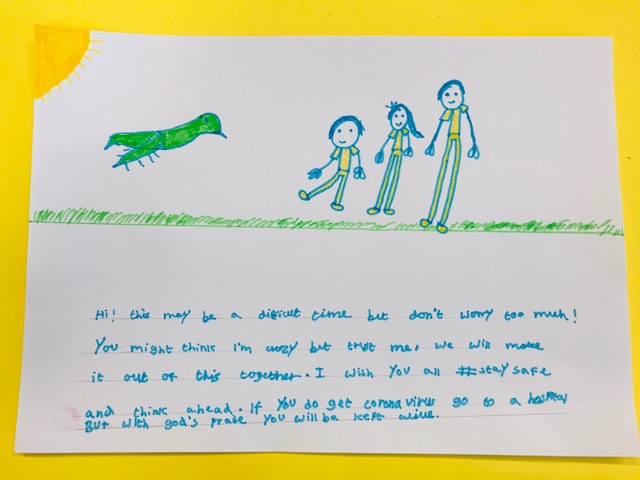 Hi! this may be a difficult time but don't worry too much!
You might think I'm crazy but trust me, we will make
it out of this together. I wish you all #staysafe
and think ahead. If you do get coronavirus go to a
But with god's you will be kept